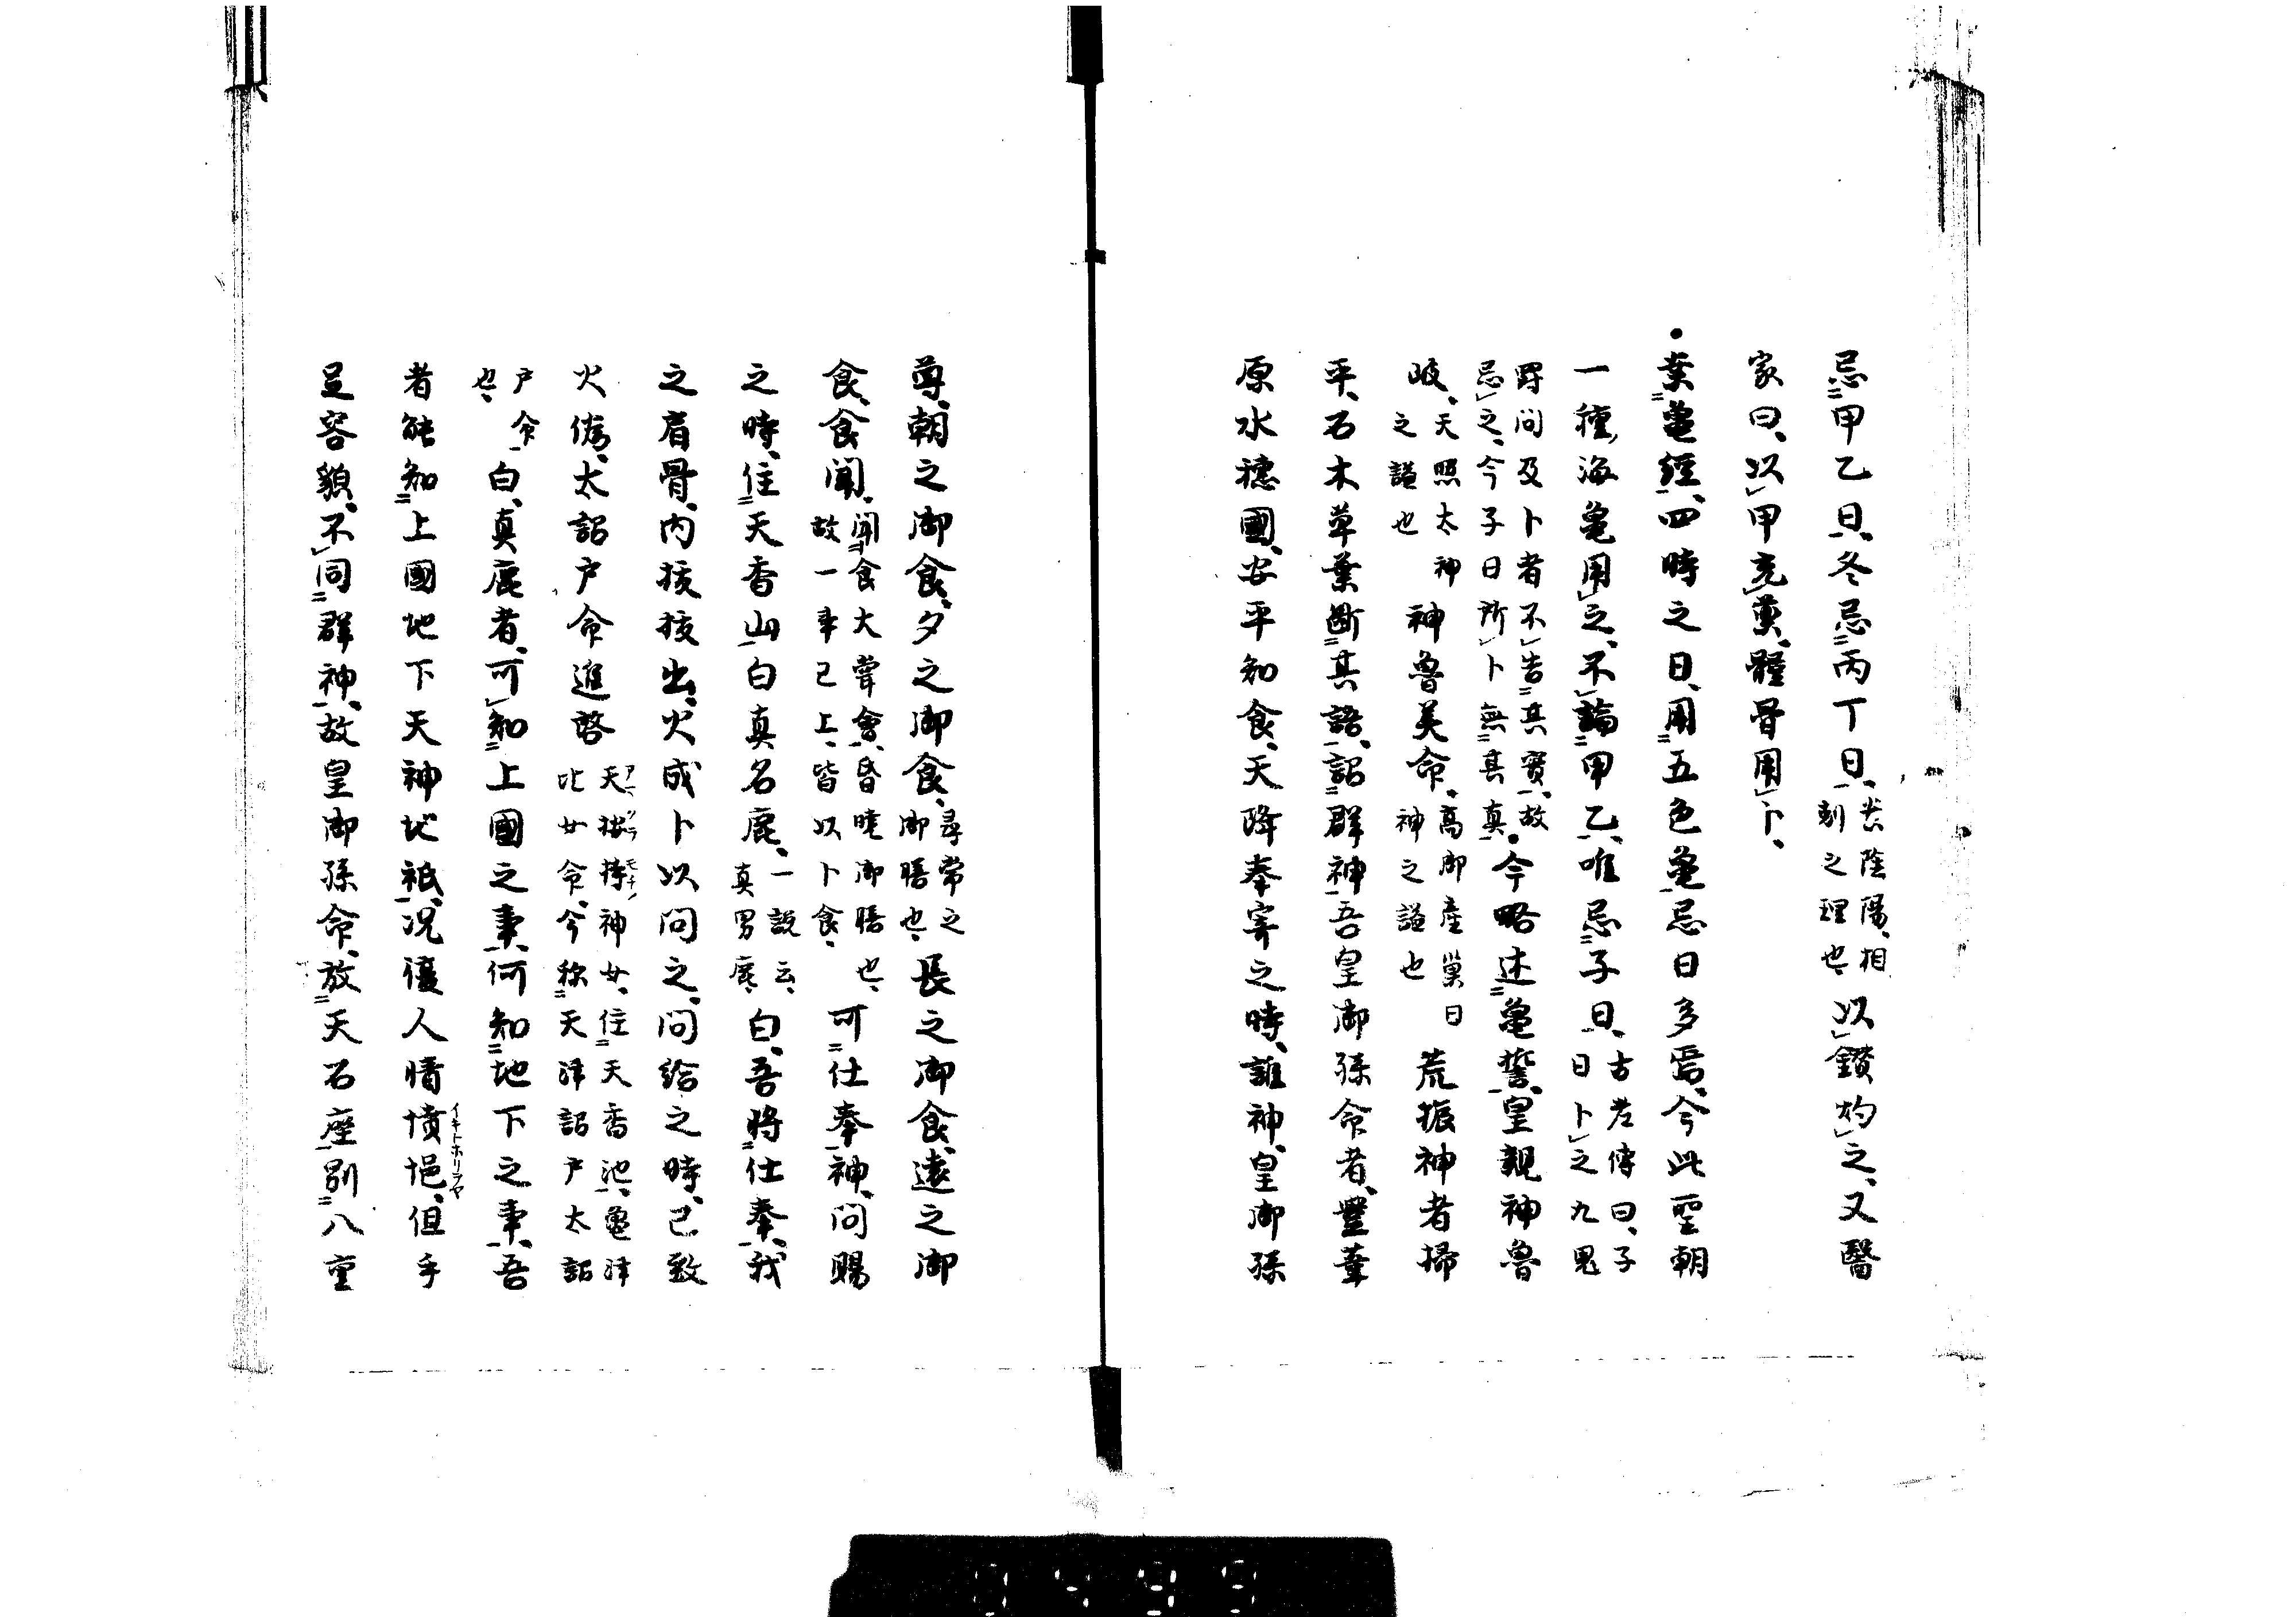 忌甲乙日、冬忌丙丁日、〈是陰陽、相剋之理也、〉以鑚灼之、又醫
家曰、以甲充藁、體骨用卜、
・葉龜經、四時之日、用五色龜、忌日多焉、今此聖朝
一種、海龜用之、不論甲乙、唯忌子日、〈古老傳曰、子日卜之九鬼
爵問及卜者不告其實、故忌之、今子日所卜無其真、〉・今略述龜誓、皇親神魯
岐、〈天照太神之謚也〉神魯美命、〈高御産巣日神之謚也〉荒振神者掃
平、石木草葉断其語、詔群神、吾皇御孫命者、豐葦
原水穗國、安平知食、天降奉寄之時、誰神、皇御孫
尊、朝之御食、夕之御食、〈尋常之御膳也、〉長之御食、遠之御
食、食聞、〈聞食大甞會、昏暁御膳也、故一事已上、皆以卜食、〉可仕奉神、問賜
之時、住天香山白真名鹿、〈一説云、真男鹿、〉白、吾將仕奉、我
之肩骨、内抜抜出、火成卜以問之、問給之時、已致
火偽、太詔戸命進啓〈天按持神女、住天香池、龜津比女命、今称天津詔戸太詔
戸命也、〉白、真鹿者、可知上國之事、何知地下之事、吾
者能知上國地下天神地祇、况復人情憤悒、但手
足容貌、不同群神、故皇御孫命、放天石座、別八重
イキトホリヲヤ